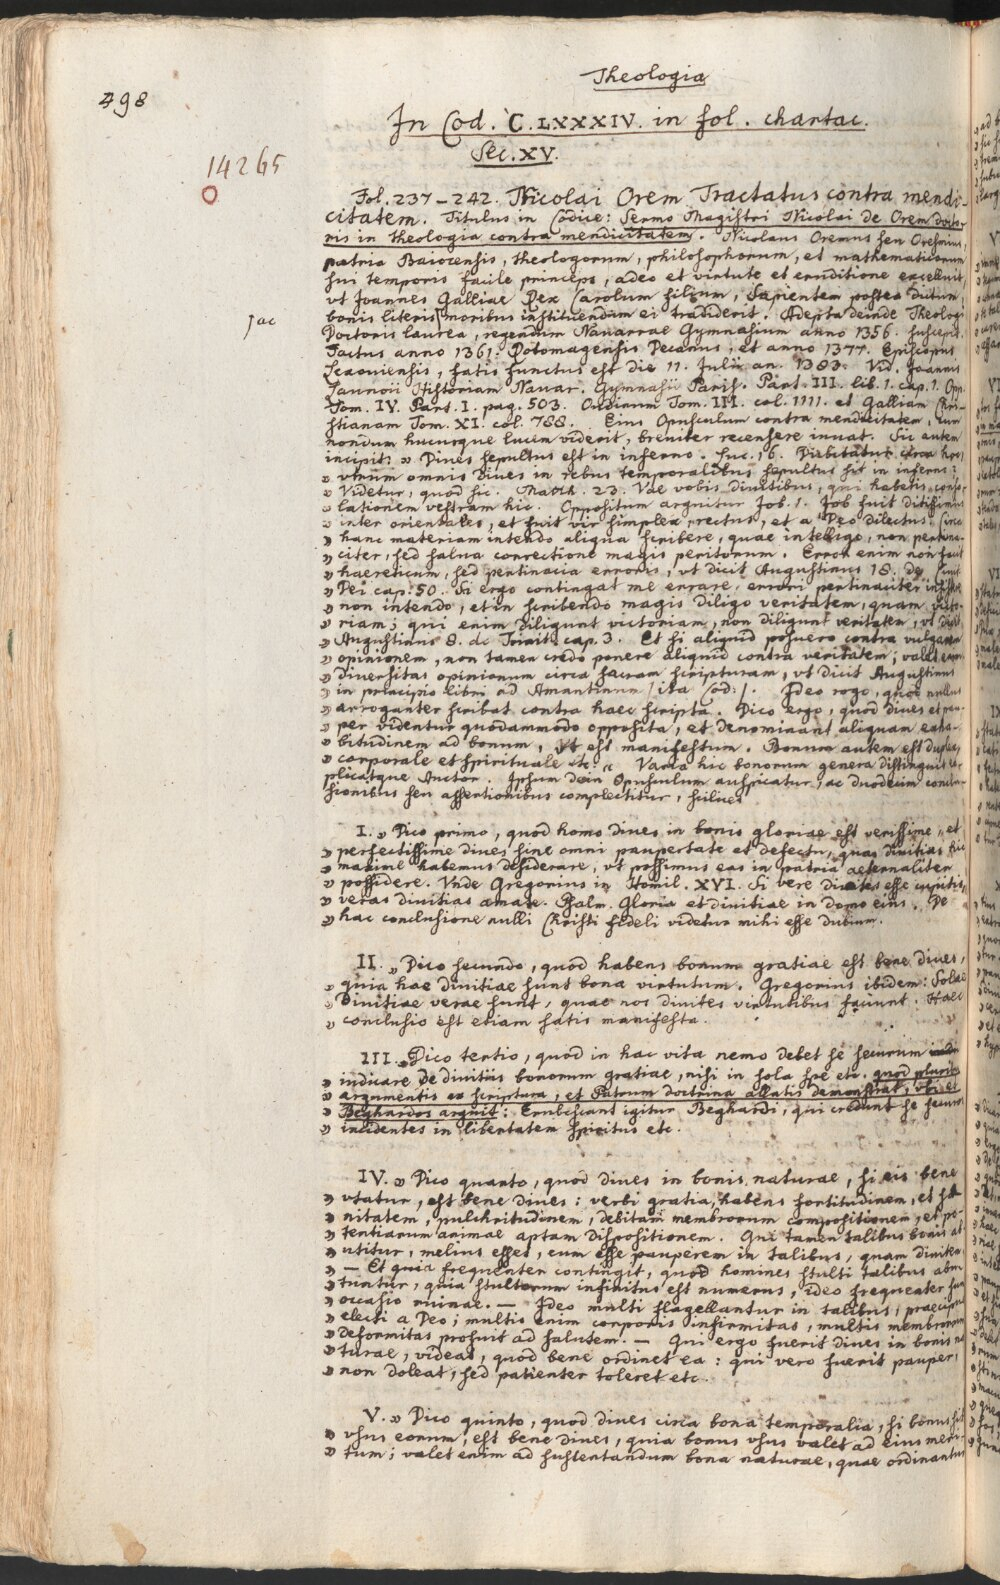 Theologia
498
In Cod. C.LXXXIV. in fol. chartac.
Sec. XV.
14265
Fol. 237-242. Nicolai Orem Tractatus contra mendi-
citatem. Titulus in Codice: Sermo Magistri Nicolai de Orem docto-
ris in theologia contra mendicitatem. Nicolaus Oremus seu Oresmius,
patria Baiocensis, theologorum, philosophorum, et mathematicorum
sui temporis facile princeps, adeo et virtute et eruditione excelluit,
vt Joannes Galliae Rex Carolum filium, Sapientem postea dictum,
bonis literis moribus instituendum ei tradiderit. Adepta deinde Theologi
Jac
Doctoris laurea, regendum Nauarrae Gymnasium anno 1356. suscepit.
Factus anno 1361. Rotomagensis Decanus, et anno 1377. Episcopus
Lexouiensis, fatis functus est die 11. Julii an. 1382. Vid. Joannis
Launoii Historiam Nauar. Gymnasii Paris. Part. III. lib. 1. cap. 1. Opp.
Tom. IV. Pars. I. pag. 503. Oudinum Tom. III. col. 1111. et Galliam Chri-
stianam Tom. XI. col. 788. Eius Opusculum contra mendicitatem, cum
nondum hucusque lucem viderit, breuiter recensere iuuat. Sic autem
incipit: » Diues sepultus est in inferno. Luc. 16. Dubitatur circa hoc,
» vtrum omnis diues in rebus temporalibus sepultus sit in inferno?
» Videtur, quod sic. Matth. 23. Vae vobis diuitibus, qui habetis conso-
» lationem vestram hic. Oppositum arguitur Job. 1. Job fuit ditissimus
» inter orientales, et fuit vir simplex, rectus, et a Deo dilectus. Circa
» hanc materiam intendo aliqua scribere, quae intelligo, non pertina-
» citer, sed salua correctione magis peritorum. Error enim non facit
» haereticum, sed pertinacia erroris, vt dicit Augustinus 18. de Ciuit
» Dei cap. 50. Si ergo contingat me errare, errori pertinaciter insistere
» non intendo, et in scribendo magis diligo veritatem, quam victo-
» riam; qui enim diligunt victoriam, non diligunt veritatem, vt dicit
» Augustinus 8. de Trinit. cap. 3. Et si aliquid posuero contra vulgarem
» opinionem, non tamen credo ponere aliquid contra veritatem; valet enim
» diuersitas opinionum circa sacram scripturam, vt dicit Augustinus
» in principio libri ad Amantinum /ita Cod:/. Ideo rogo, quod nullus
» arroganter scribat contra haec scripta. Dico ergo, quod diues et pau-
» per videntur quodammodo opposita, et denominant aliquam exha-
» bitudinem ad bonum, vt est manifestum. Bonum autem est duplex,
» corporale et spirituale etc. « Varia hic bonorum genera distinguit ex-
plicatque Auctor. Ipsum dein Opusculum auspicatur, ac duodecim conclu-
sionibus seu assertionibus complectitur, scilicet
I. » Dico primo, quod homo diues in bonis gloriae est verissime, et
» perfectissime diues sine omni paupertate et defectu, quas diuitias hic
» maxime habemus desiderare, vt possimus eas in patria aeternaliter
» possidere. Vnde Gregorius in Homil. XVI. Si vere diuites esse cupitis,
» veras diuitias amate. Psalm. Gloria et diuitiae in domo eius. De
» hac conclusione nulli Christi fideli videtur mihi esse dubium.
II. » Dico secundo, quod habens bonum gratiae est bene diues,
» quia hae diuitiae sunt bona virtutum. Gregorius ibidem: Solae
» Diuitiae verae sunt, quae nos diuites virtutibus faciunt. Haec
» conclusio est etiam satis manifesta.
III. » Dico tertio, quod in hac vita nemo debet se securum
» iudicare de diuitiis bonorum gratiae, nisi in sola spe etc. quod pluribus
» argumentis ex scriptura, et Patrum doctrina allatis demonstrat, vbi et
» Beghardos arguit: Erubescant igitur Beghardi, qui credunt se securos
» incidentes in libertatem spiritus etc.
IV. » Dico quarto, quod diues in bonis naturae, si eis bene
» vtatur, est bene diues: verbi gratia, habens fortitudinem, et sa-
» nitatem, pulchritudinem, debitam membrorum compositionem, et po-
» tentiarum animae aptam dispositionem. Qui tamen talibus bonis ab-
» utitur, melius esset, eum esse pauperem in talibus, quam diuitem.
» — Et quia frequenter contingit, quod homines stulti talibus abu-
» tuntur, quia stultorum infinitus est numerus, ideo frequenter sunt
» occasio ruinae. — Ideo multi flagellantur in talibus, praecipue
» electi a Deo; multis enim corporis infirmitas, multis membrorum
» deformitas profuit ad salutem. — Qui ergo fuerit diues in bonis na-
» turae, videat, quod bene ordinet ea: qui vero fuerit pauper,
» non doleat, sed patienter toleret etc.
V. » Dico quinto, quod diues circa bona temporalia, si bonus sit
» vsus eorum, est bene diues, quia bonus vsus valet ad eius meri-
» tum; valet enim ad sustentandum bona naturae, quae ordinantur